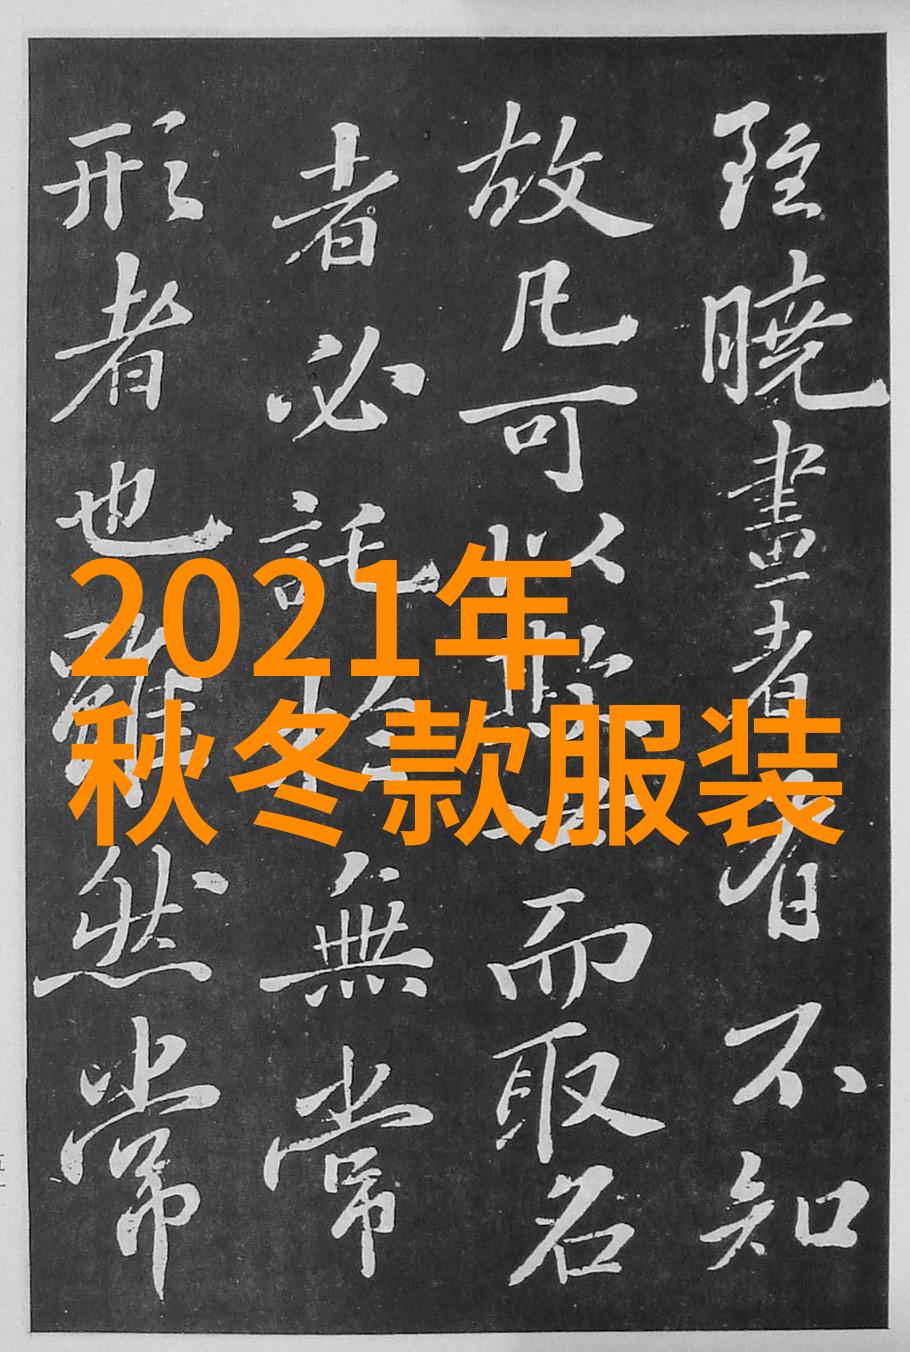 曉畫者有不知
故凡可以欺世而取名
者必託於無常
形者也雖然常
2021年
秋冬款服装